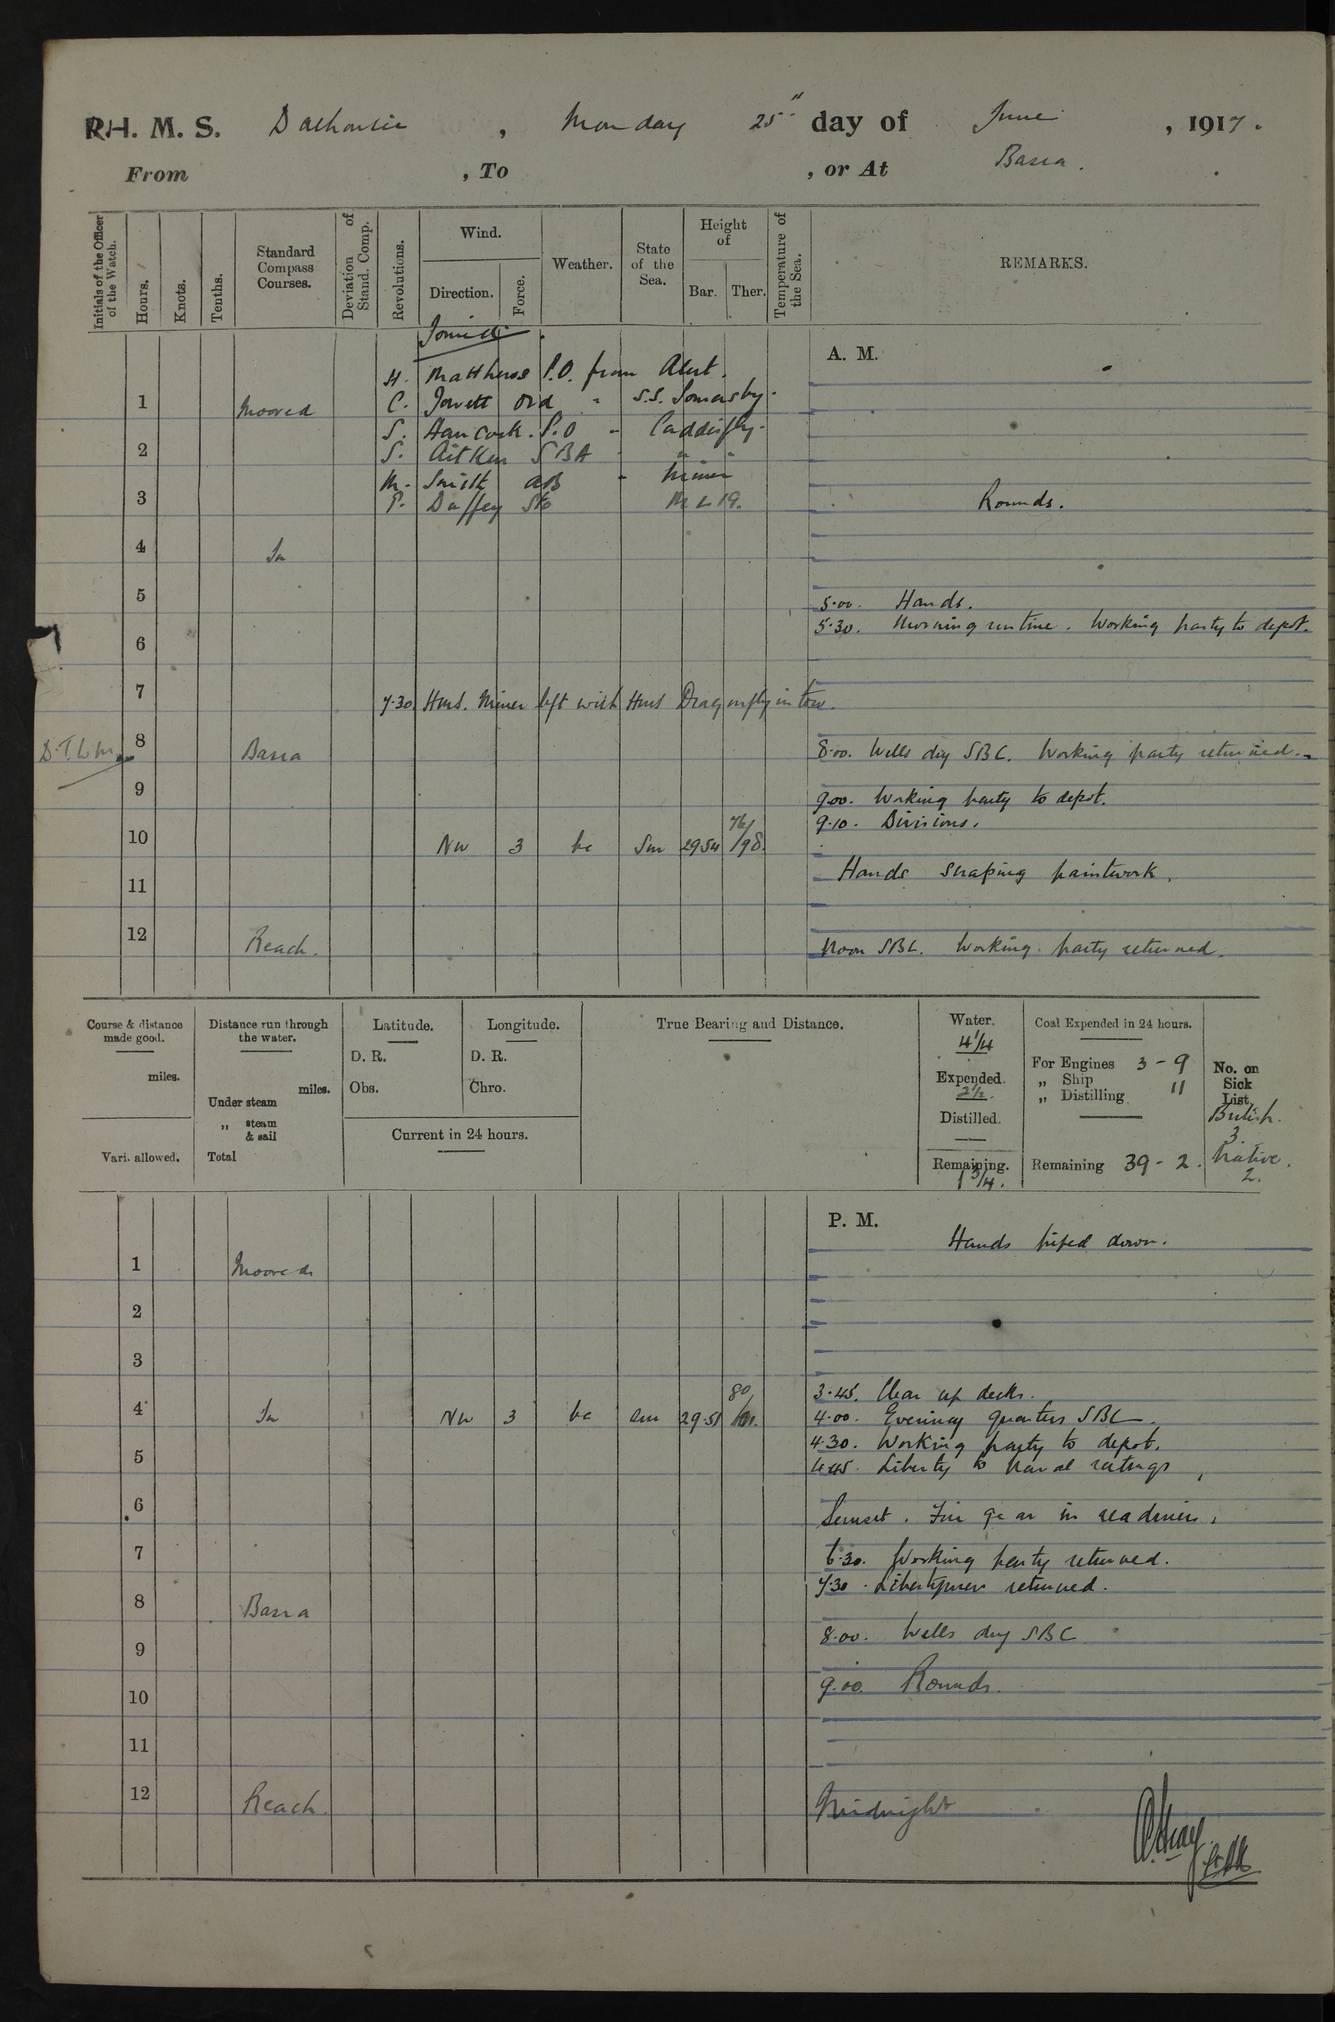 R.H. M. S. Dalhousie, Monday 25" day of June, 1917.
From , To , or At Basra.
Initials of the Officer of the Watch.
Hours.
Knots.
Tenths.
Standard Compass Courses.
Deviation of Stand. Comp.
Revolutions.
Wind.
Direction.
Force.
Weather.
State of the Sea.
Height of
Bar.
Ther.
Temperature of the Sea.
REMARKS.
Joined
A. M.
H. Matthews P.O. from Alert.
1 Moored C. Jowett Ord " S.S. Somersby.
S. Hancock. P.O "
2 S. Aitken SBA " "
M. Smith AB " Miner
3 P. Duffey Sto M L 19. Rounds.
4 In
5 5.00. Hands.
5.30. Morning routine. Working party to depot.
6
7 7.30 HMS. Miner left with HMS Dragonfly in tow.
8 Basra 8.00. Wells dry SBC. Working party returned.
9 9.00. Working party to depot.
9.10. Divisions.
10 NW 3 bc Sm 29.54 76/98.
11 Hands scraping paintwork.
12 Reach. Noon SBC. Working party returned.
Course & distance made good.
miles.
Vari. allowed.
Distance run through the water.
miles.
Under steam
„ steam & sail
Total
Latitude.
D. R.
Obs.
Longitude.
D. R.
Chro.
Current in 24 hours.
True Bearing and Distance.
Water.
4 1/4
Expended.
2 1/2.
Distilled.
Remaining.
1 3/4.
Coal Expended in 24 hours.
For Engines 3 - 9
„ Ship 11
„ Distilling
Remaining 39 - 2.
No. on Sick List.
British.
3.
Native.
2.
P. M.
Hands piped down.
1 Moored
2
3
3.45. Clear up decks.
4 In NW 3 bc Sm 29.51 80/ 4.00. Evening quarters SBC.
4.30. Working party to depot.
5 4.45. Liberty to naval ratings,
6 Sunset. Fire gear in readiness.
7 6.30. Working party returned.
7.30. Libertymen returned.
8 Basra
8.00. Wells dry SBC
9
9.00 Rounds.
10
11
12 Reach. Midnight